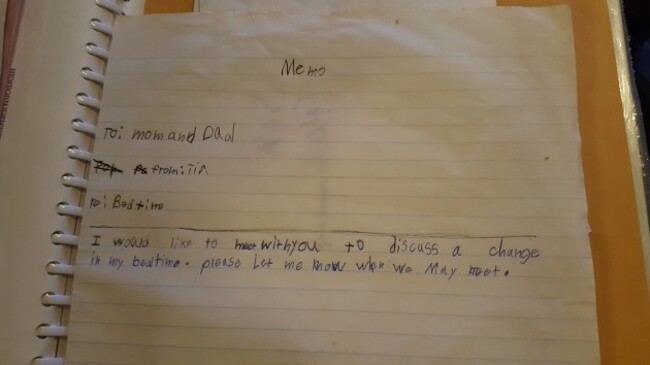 Memo
To: mom and Dad
from: Tia
to: Bedtime
I would like to meet with you to discuss a change
in my bedtime. please Let me know when we May meet.